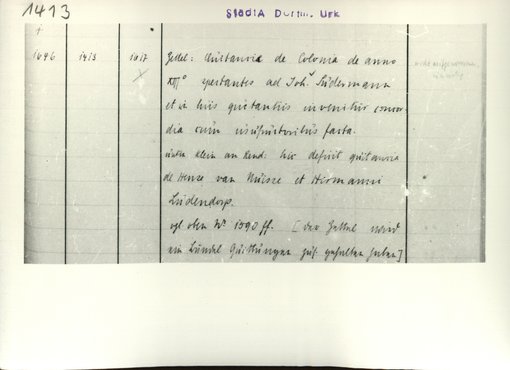 1413
StadtA Dortm. Urk
1646 1413 1617 Zedel: Quitancia de Colonia de anno
XIII° spectantes ad Joh. Sudermann
et in hiis quitantiis invenitur concor
dia cum usufructoribus facta.
unten klein am Rand: hic deficit quitancia
de Henze van Nuisse et Hermanni
Ludendorp.
vgl oben N° 1590 ff. [Der Zettel wird
ein Bündel Quittungen zus. gehalten haben]